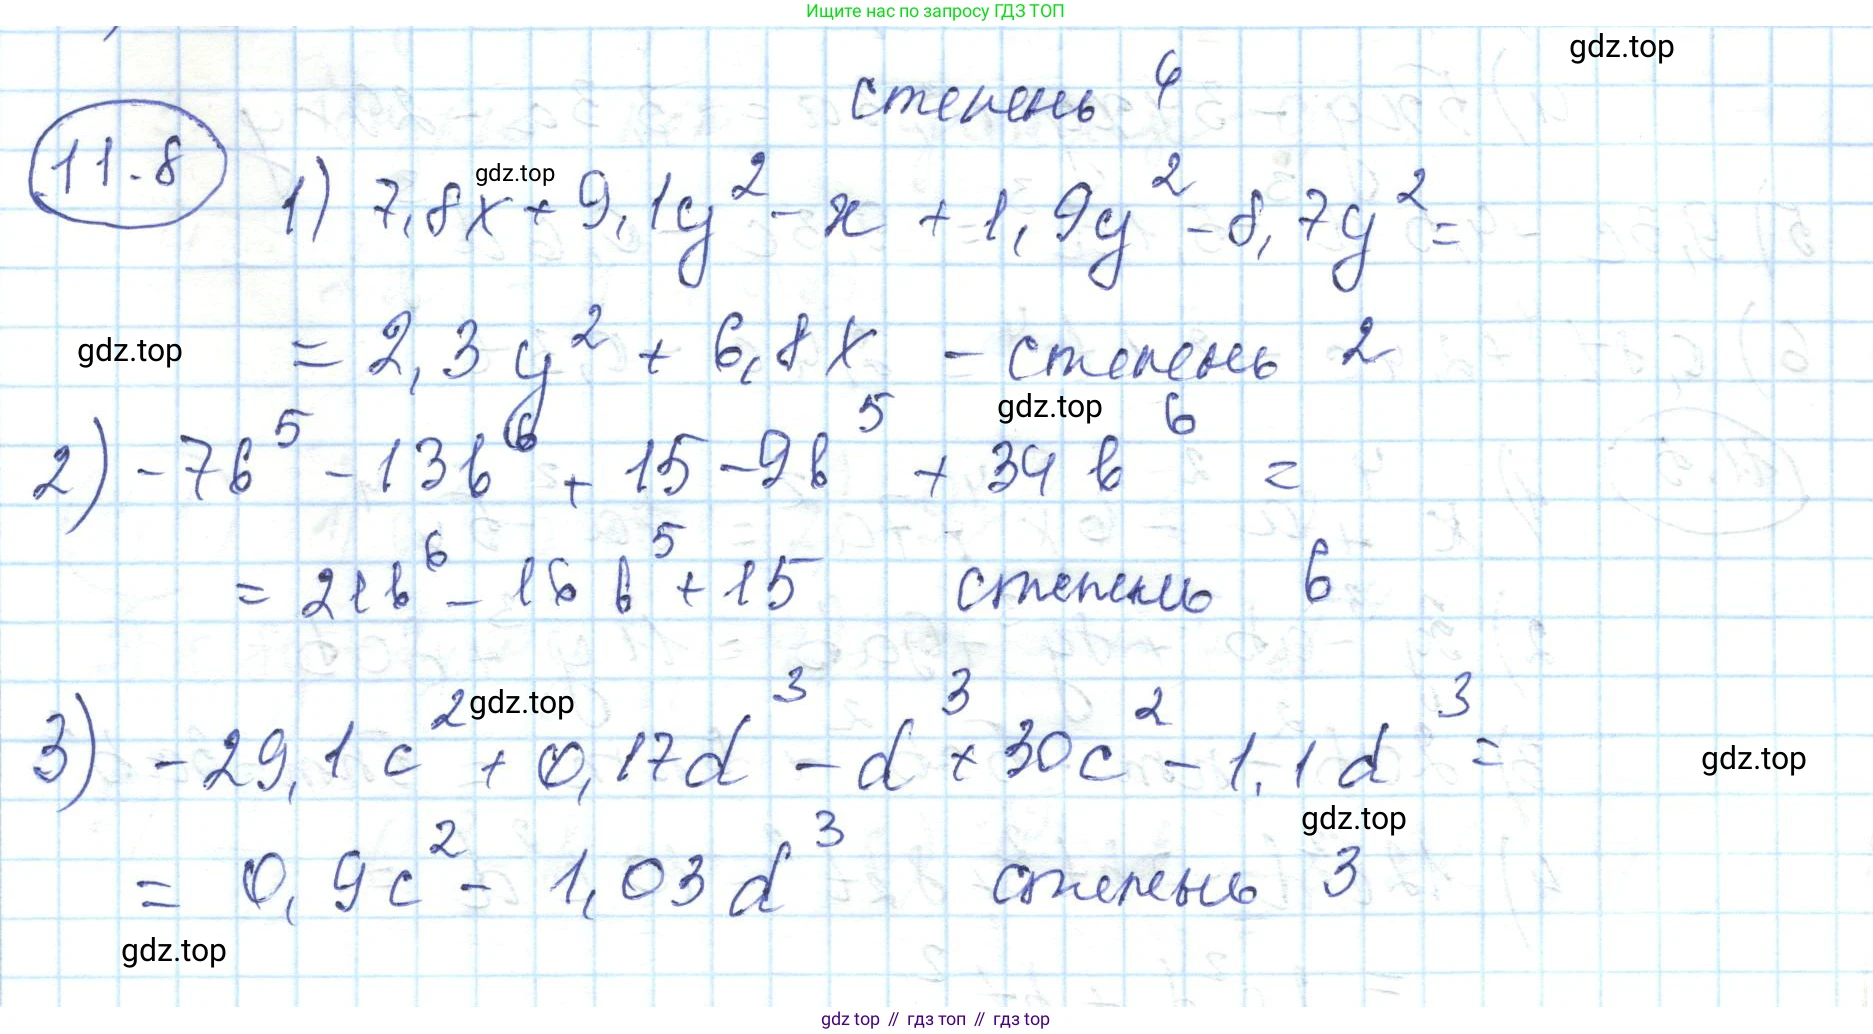 Ищите нас по запросу ГДЗ ТОП
gdz.top
степень 4
11.8
gdz.top
1) 7,8x + 9,1y² - x + 1,9y² - 8,7y² =
gdz.top
= 2,3y² + 6,8x - степень 2
gdz.top
2) -7b⁵ - 13b⁶ + 15 - 9b⁵ + 34b⁶ =
= 21b⁶ - 16b⁵ + 15 степень 6
gdz.top
3) -29,1c² + 0,17d³ - d³ + 30c² - 1,1d³ =
gdz.top
gdz.top
= 0,9c² - 1,03d³ степень 3
gdz.top
gdz top // гдз топ // гдз top